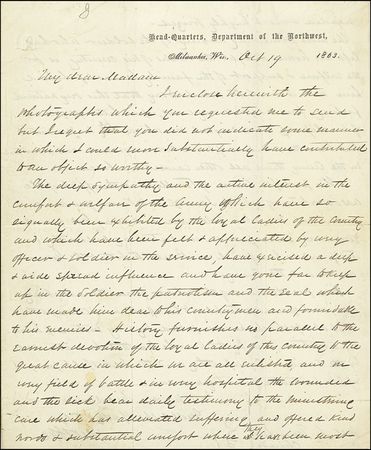 8
Head-Quarters, Department of the Northwest,
Milwaukie, Wis. Oct 19 1863.
My dear Madam
I enclose herewith the
photographs which you requested me to send
but I regret that you did not indicate some manner
in which I could more substantially have contributed
to an object so worthy—
The deep sympathy and the active interest in the
comfort & welfare of the Army which have so
signally been exhibited by the loyal Ladies of the Country
and which have been felt & appreciated by every
officer & soldier in the service, have exercised a deep
& wide spread influence and have gone far to keep
up in the soldier the patriotism and the zeal which
have made him dear to his countrymen and formidable
to his enemies— History furnishes no parallel to the
earnest devotion of the loyal Ladies of this Country to the
great cause in which we are all enlisted and on
every field of battle & in every hospital the wounded
and the sick bear daily testimony to the
care which has alleviated suffering and offered kind
words & substantial comfort where they has been most